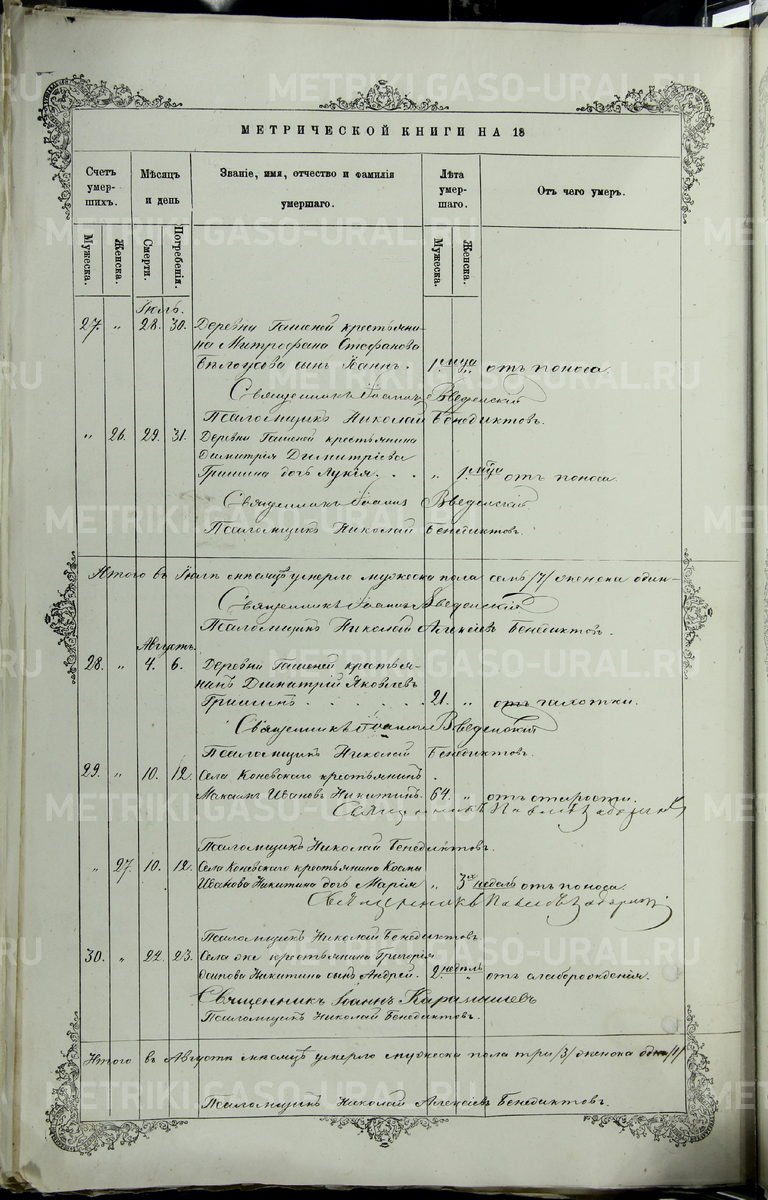 МЕТРИЧЕСКОЙ КНИГИ НА 18
Счетъ умер-шихъ.
Мѣсяцъ и день
Званіе, имя, отчество и фамилія умершаго.
Лѣта умер-шаго.
Отъ чего умеръ.
Мужеска. Женска. Смерти. Погребенія. Мужеска. Женска.
Іюль.
27. „ 28. 30. Деревни Гашеной крестьяни-
на Митрофана Стефанова
Бѣлоусова сынъ Іоаннъ. 1 р. м-ца „ отъ поноса.
Священникъ Іоаннъ Введенскій
Псаломщикъ Николай Бенедиктовъ.
„ 26. 29. 31. Деревни Гашеной крестьянина
Димитрія Димитріева
Гришина дочь Лукія. „ отъ поноса.
Священникъ Іоаннъ Введенскій
Псаломщикъ Николай Бенедиктовъ.
Итого въ Іюлѣ мѣсяцѣ умерло мужеска пола семь /7/ женска один-
Священникъ Іоаннъ Введенскій
Псаломщикъ Николай Алексѣевъ Бенедиктовъ.
Августъ.
28. „ 4. 6. Деревни Гашеной крестья-
нинъ Димитрій Яковлевъ
Гришинъ 21. „ отъ чахотки.
Священникъ Іоаннъ Введенскій
Псаломщикъ Николай Бенедиктовъ.
29. „ 10. 12. Села Коневскаго крестьянинъ
Максимъ Ивановъ Никитинъ. 64. „ отъ старости.
Священникъ Павелъ
Псаломщикъ Николай Бенедиктовъ.
„ 27. 10. 12. Села Коневскаго крестьянина Космы
Иванова Никитина дочь Марія „ 3хъ недель отъ поноса.
Священникъ Павелъ
Псаломщикъ Николай Бенедиктовъ.
30. „ 22. 23. Села же крестьянина Григорія
Осипова Никитина сынъ Андрей. 2. недѣль „ отъ слаборожденія.
Священникъ Іоаннъ Карамышевъ
Псаломщикъ Николай Бенедиктовъ.
Итого въ Августѣ мѣсяцѣ умерло мужеска пола три /3/ женска одна /1/
Псаломщикъ Николай Алексѣевъ Бенедиктовъ.
METRIKI.GASO-URAL.RU